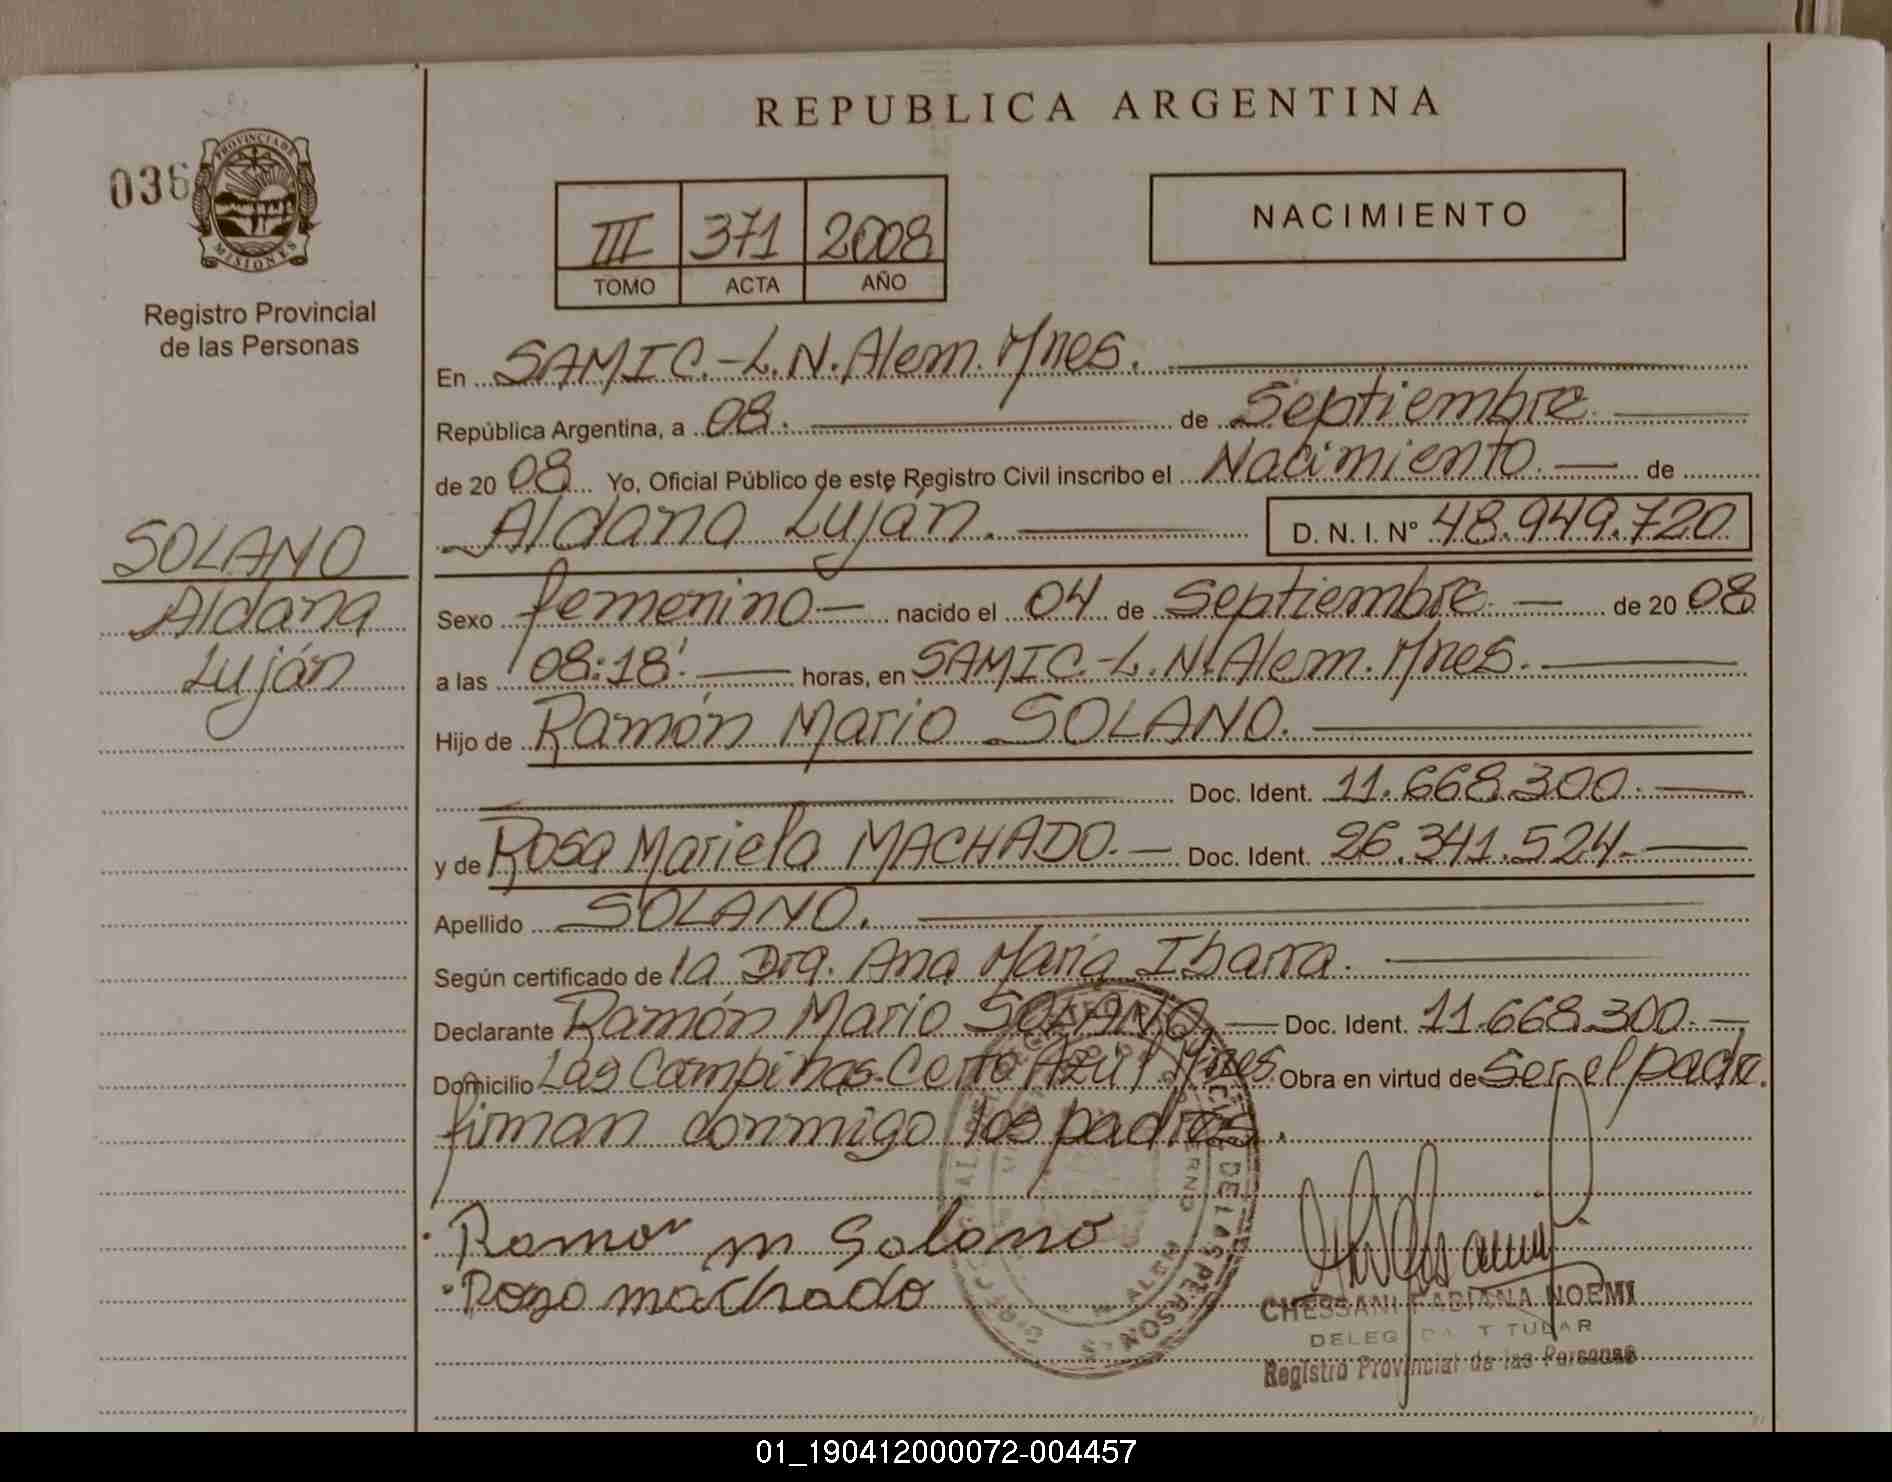 REPUBLICA ARGENTINA
036
PROVINCIA DE
MISIONES
Registro Provincial
de las Personas
III 371 2008
TOMO ACTA AÑO
NACIMIENTO
En SAMIC.-L.N.Alem.Mnes.
República Argentina, a 08. de Septiembre
de 20 08 Yo, Oficial Público de este Registro Civil inscribo el Nacimiento. de
Aldana Luján. D. N. I. N° 48.949.720
SOLANO
Aldana
Luján
Sexo femenino nacido el 04 de Septiembre de 20 08
a las 08:18' horas, en SAMIC.-L.N.Alem.Mnes.
Hijo de Ramón Mario SOLANO.
Doc. Ident. 11.668.300.
y de Rosa Mariela MACHADO. Doc. Ident. 26.341.524.
Apellido SOLANO.
Según certificado de la Dra. Ana María Ibarra.
Declarante Ramón Mario SOLANO Doc. Ident. 11.668.300.
Domicilio Las Campinas. Cerro Azúl Mnes. Obra en virtud de Ser el padre.
firman conmigo los padres.
Ramon m Solano
Rosa machado
DE LAS PERSONAS
CHESSANI FABIANA NOEMI
DELEGADA TITULAR
Registro Provincial de las Personas
01_190412000072-004457